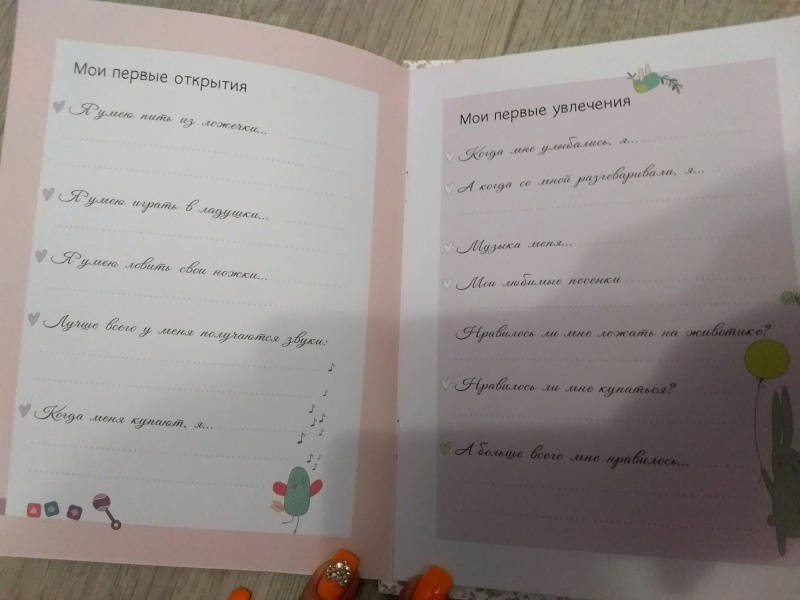 Мои первые открытия
Я умею пить из ложечки...
Я умею играть в ладушки...
Я умею ловить свои ножки...
Лучше всего у меня получаются звуки:
Когда меня купают, я...
Мои первые увлечения
Когда мне улыбались, я...
А когда со мной разговаривали, я...
Музыка меня...
Мои любимые песенки
Нравилось ли мне лежать на животике?
Нравилось ли мне купаться?
А больше всего мне нравилось...